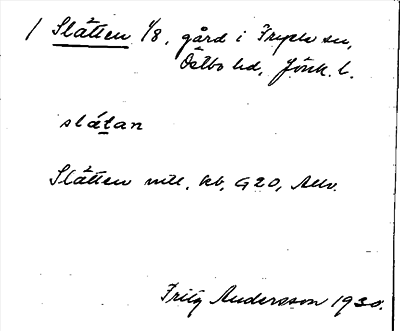 / Slätten 1/8, gård i Fryele sn,
Östbo hd, Jönk. l.
slätan
Slätten mtl, kb, G20, Allv.
Fritz Andersson 1930.